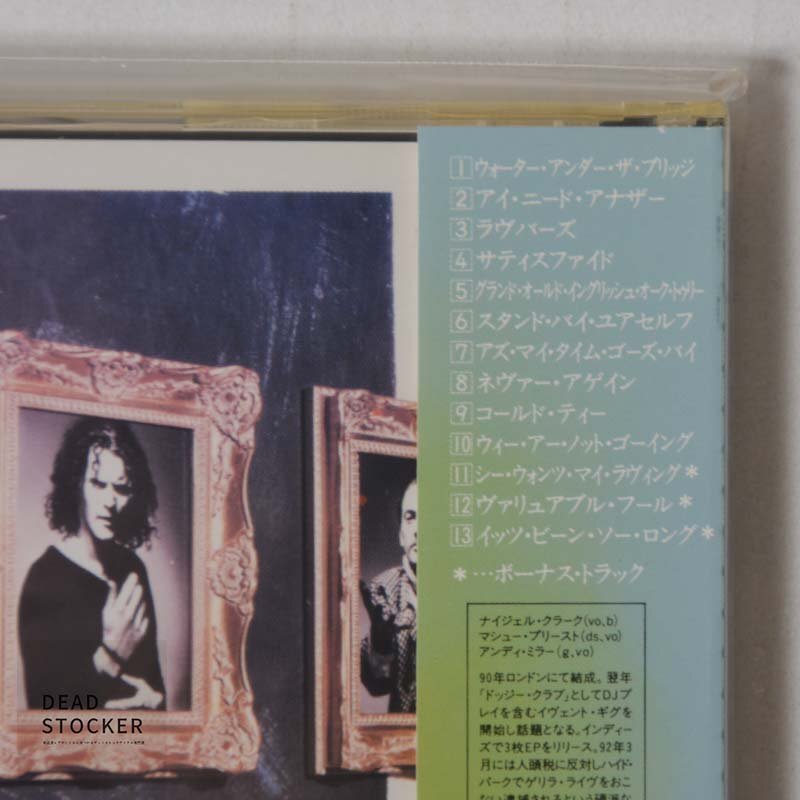 1 ウォーター・アンダー・ザ・ブリッジ
2 アイ・ニード・アナザー
3 ラヴバーズ
4 サティスファイド
5 グランド・オールド・イングリッシュ・オーク・トゥリー
6 スタンド・バイ・ユアセルフ
7 アズ・マイ・タイム・ゴーズ・バイ
8 ネヴァー・アゲイン
9 コールド・ティー
10 ウィー・アー・ノット・ゴーイング
11 シー・ウォンツ・マイ・ラヴィング*
12 ヴァリュアブル・フール*
13 イッツ・ビーン・ソー・ロング*
*…ボーナス・トラック
ナイジェル・クラーク(vo、b)
マシュー・プリースト(ds、vo)
アンディ・ミラー(g、vo)
90年ロンドンにて結成。翌年
「ドッジー・クラブ」としてDJプ
レイを含むイヴェント・ギグを
開始し話題となる。インディー
ズで3枚EPをリリース。92年3
月には人頭税に反対しハイド・
パークでゲリラ・ライヴをおこ
DEAD
STOCKER